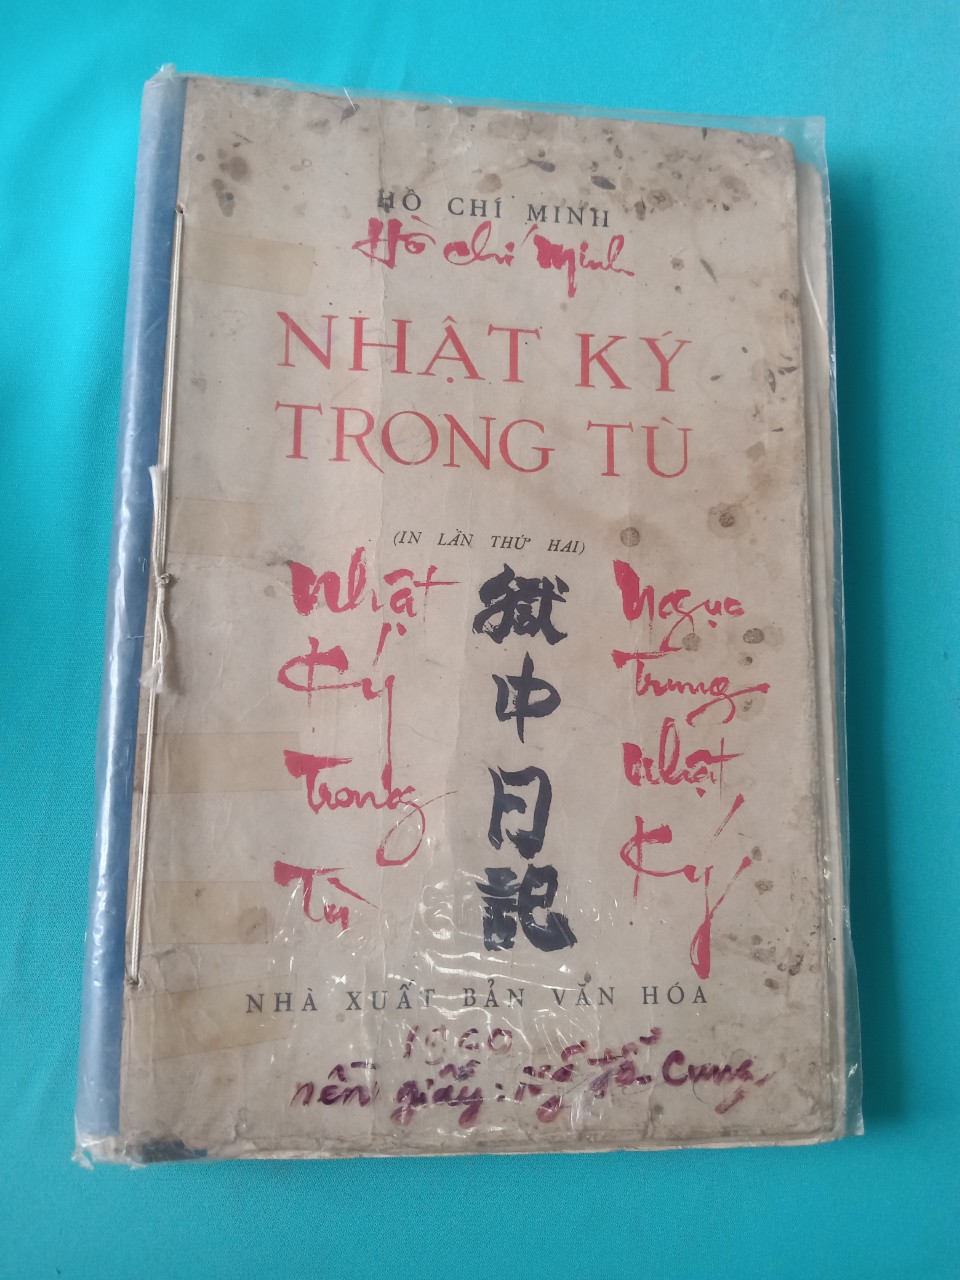 HỒ CHÍ MINH
Hồ Chí Minh
NHẬT KÝ
TRONG TÙ
(IN LẦN THỨ HAI)
Nhật
Ký
Trong
Tù
獄中日記
Ngục
Trung
Nhật
Ký
NHÀ XUẤT BẢN VĂN HÓA
1960
nền giấy: Cung